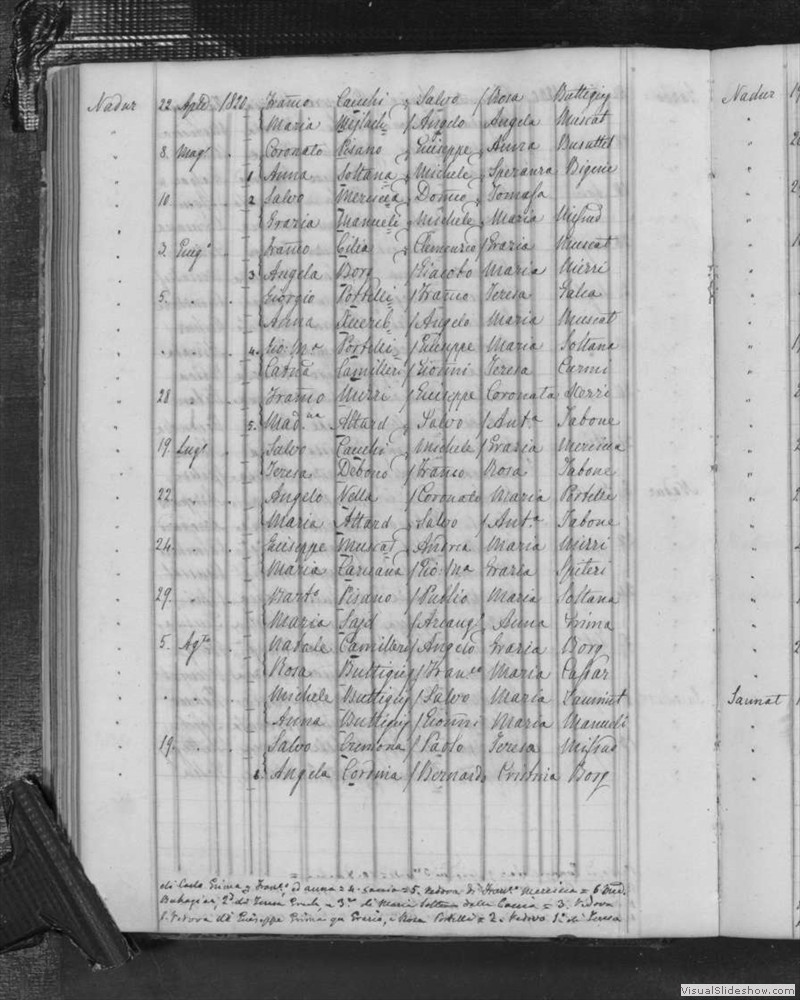 Nadur 22 Aple 1820 Franco Cauchi Salvo Rosa Buttigieg
Maria Angelo Angela Muscat
8 Magº Coronato Pisano Giuseppe Anna Busuttil
1 Anna Soltana Michele Speranza Bigeni
10 2 Salvo Mercieca Domco Tomasa
Grazia Manueli Michele Maria Mifsud
2. Giugº Franco Cilia Clemenzio Grazia Muscat
3 Angela Borg Giacobo Maria Mizzi
5. Giorgio Portelli Franco Teresa Galea
Anna Angelo Maria Muscat
4. Gio: Ma Portelli Giuseppe Maria Soltana
Catna Camilleri Giovni Teresa Curmi
28 Franco Mizzi Giuseppe Coronata Mizzi
5. Madna Attard Salvo Anta Tabone
19. Lugº Salvo Cauchi Michele Grazia Mercieca
Teresa Debono Franco Rosa Tabone
22. Angelo Vella Coronato Maria Portelli
Maria Attard Salvo Anta Tabone
24. Giuseppe Muscat Andrea Maria Mizzi
Maria Caruana Gio: Ma Grazia Spiteri
29. Barto Pisano Publio Maria Soltana
Maria Said Arcangº Anna Grima
5. Agto Natale Camilleri Angelo Grazia Borg
Rosa Buttigieg Franco Maria Caspar
Michele Buttigieg Salvo Maria
Anna Buttigieg Giovni Maria Manueli
19. Salvo Cremona Paolo Teresa Mifsud
6. Angela Cordina Bernardo Borg
di Carlo Grima, Franca, ed Anna = 4. = 5. Vedova di Franco Mercieca = 6
Buhagiar, 2º di Teresa = 3º di Maria Soltana della = 3. Vedova
1. Vedova di Giuseppe Grima qu Grazio, e Rosa Portelli = 2. Vedovo 1º di Teresa
Nadur
Sannat
VisualSlideshow.com